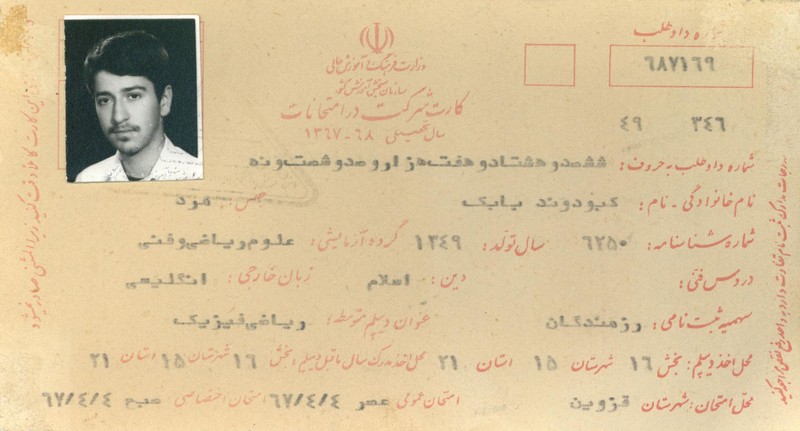 شماره داوطلب
وزارت فرهنگ و آموزش عالی
۶۸۷۱۶۹
سازمان سنجش آموزش کشور
کارت شرکت در امتحانات
سال تحصیلی ۶۸-۱۳۶۷
۳۴۶ ۴۹
شماره داوطلب به حروف: ششصدوهشتادوهفت هزاروصدوشصت ونه
نام خانوادگی - نام: کبودوند بابک جنس: مرد
شماره شناسنامه: ۶۲۵۰ سال تولد: ۱۳۴۹ گروه آزمایشی: علوم ریاضی وفنی
دروس فنی: دین: اسلام زبان خارجی: انگلیسی
سهمیه ثبت نامی: رزمندگان عنوان دیپلم متوسطه: ریاضی فیزیک
محل اخذ دیپلم: بخش ۱۶ شهرستان ۱۵ استان ۲۱ محل اخذ مدرک سال ماقبل دیپلم: بخش ۱۶ شهرستان ۱۵ استان ۲۱
محل امتحان: شهرستان قزوین امتحان عمومی عصر ۶۷/۴/۴ امتحان اختصاصی صبح ۶۷/۴/۴